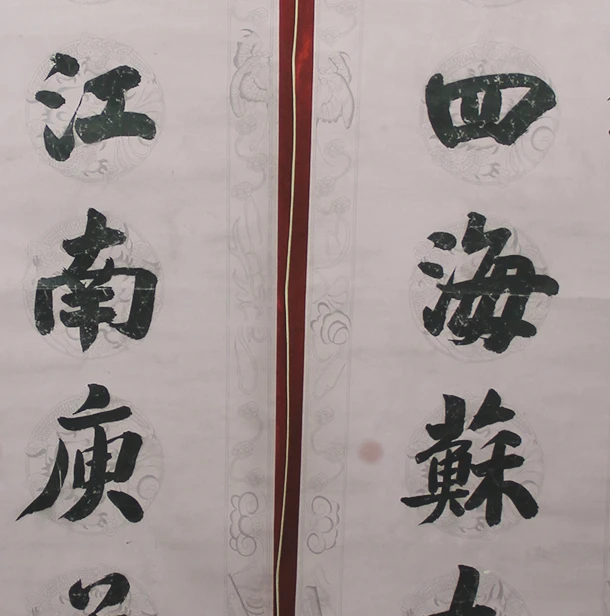 四海蘇
江南庾